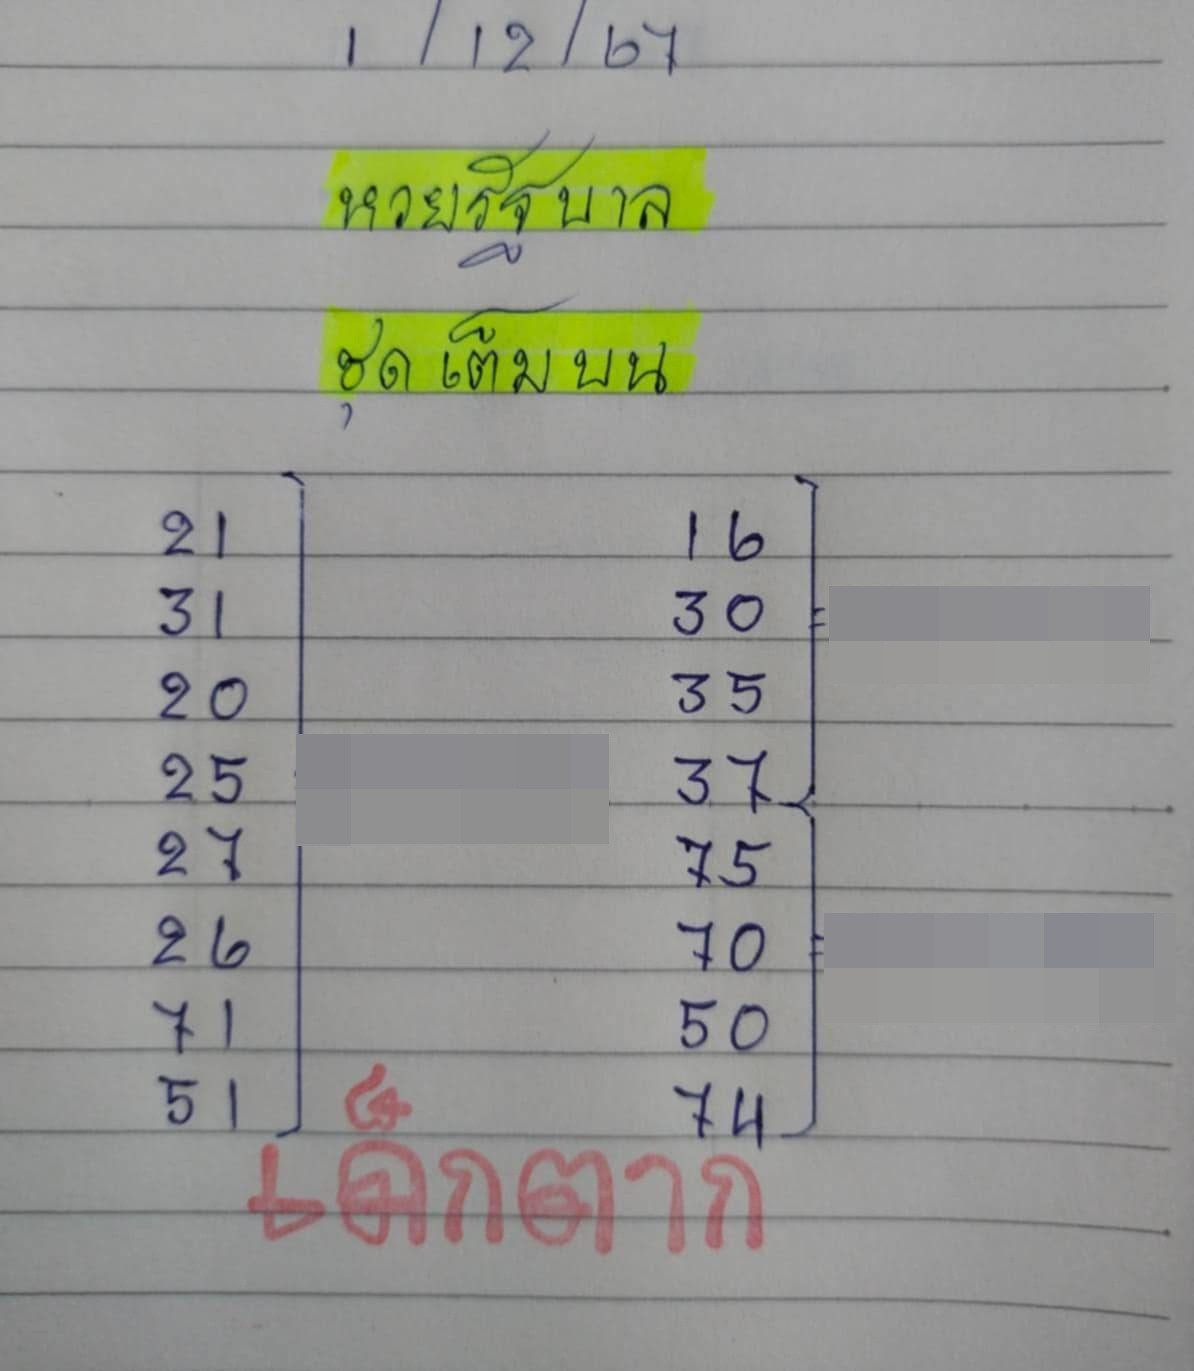 1/12/67
หวยรัฐบาล
ชุดเต็มบน
21
31
20
25
27
26
71
51
16
30 =
35
37
75
70 =
50
74
เด็กตาก